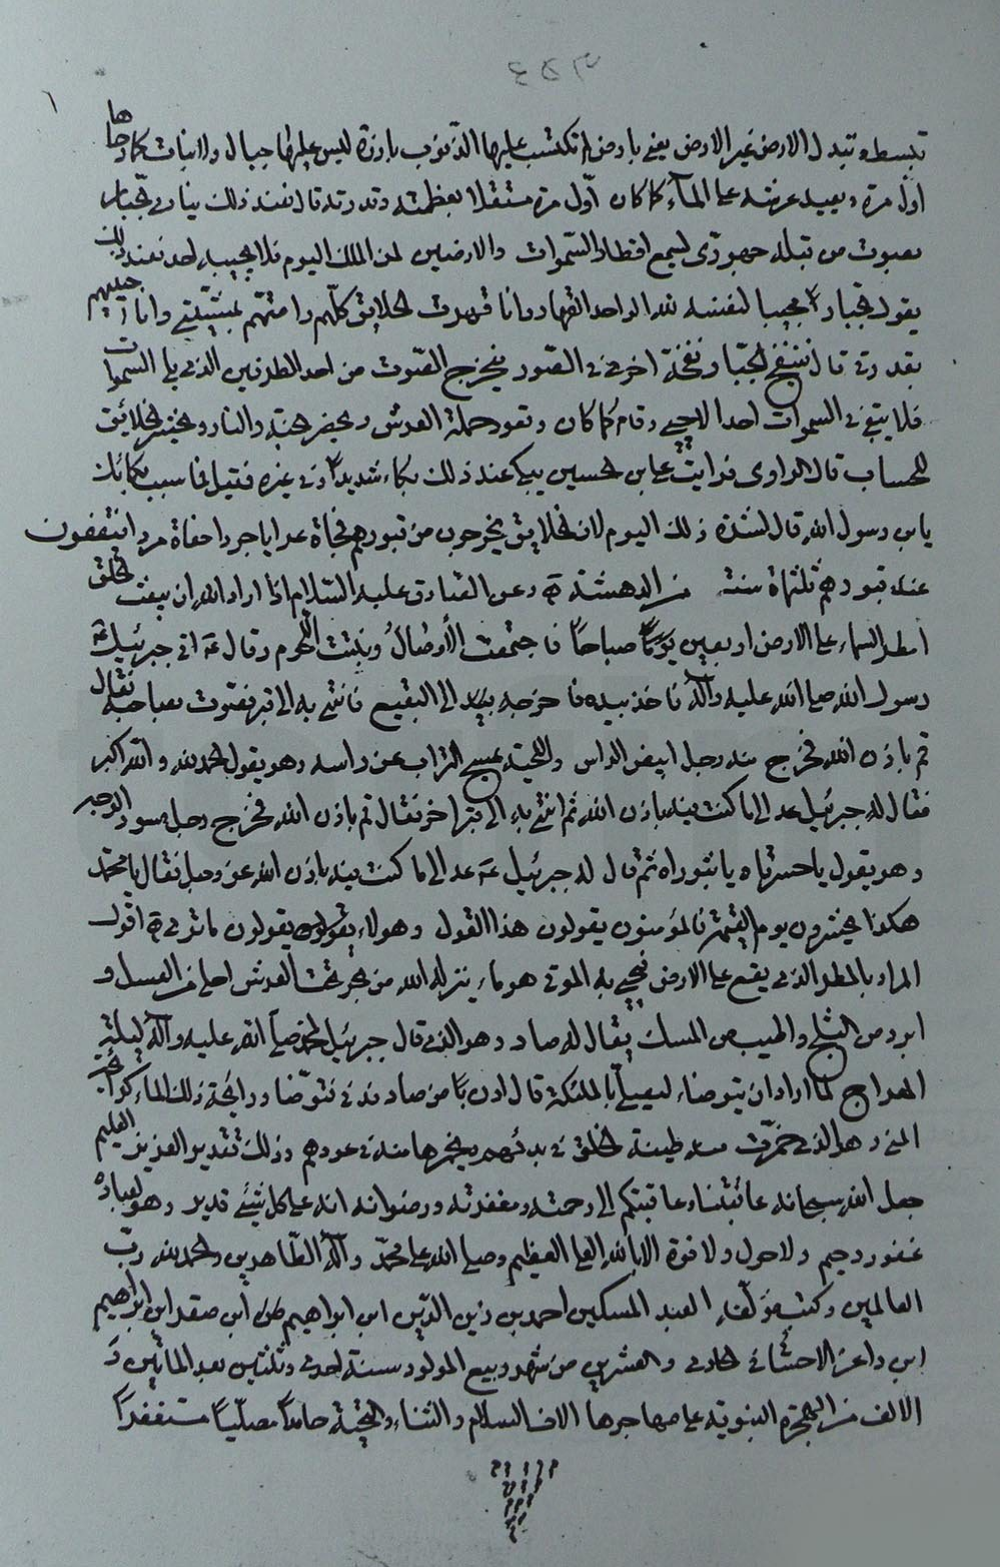 تبسط وتبدل الارض غير الارض يعني بارض لم تكتسب عليها الذنوب بارزة ليس عليها جبال ولا نبات كما دحاها
اول مرة ويعيد عرشه على الماء كما كان اول مرة مستقلا بعظمته وقدرته قال فعند ذلك ينادي الجبار
بصوت من قبله جهوري يسمع اقطار السموات والارضين لمن الملك اليوم فلا يجيبه احد فعند ذلك
يقول الجبار مجيبا لنفسه لله الواحد القهار وانا قهرت الخلايق كلهم وامتهم بمشيتي وانا احييهم
بقدرتي قال فينفخ الجبار نفخة اخرى في الصور فيخرج الصوت من احد الطرفين الذي يلي السموات
فلا يبقى في السموات احد الا حيي وقام كما كان وتعود حملة العرش ويحضر الجنة والنار ويحشر الخلائق
للحساب قال الراوي فرايت علي بن الحسين يبكي عند ذلك بكاء شديدا وفي غيره فقيل لما سبب بكائك
يابن رسول الله قال لشدة ذلك اليوم لان الخلايق يخرجون من قبورهم فجاة عرايا جردا حفاة مردا فيقفون
عند قبورهم ثلثماة سنة من الدهشة وعن الصادق عليه السلام اذا اراد الله ان يبعث الخلق
امطر السماء على الارض اربعين يوما صباحا فاجتمعت الأوصال ونبتت اللحوم وقال ع اتى جبرئيل ع
رسول الله صلى الله عليه وآله فاخذ بيده فاخرجه الى البقيع فانتهى به الى قبر فصوت بصاحبه فقال
قم باذن الله فخرج منه رجل ابيض الراس واللحية يمسح التراب عن راسه وهو يقول الحمد لله والله اكبر
فقال له جبرئيل عد الى ما كنت فيه باذن الله ثم انتهى به الى قبر اخر فقال قم باذن الله فخرج رجل مسود الوجه
وهو يقول يا حسرتاه يا ثبوراه ثم قال له جبرئيل ع عد الى ما كنت فيه باذن الله عز وجل فقال يا محمد
هكذا يحشرون يوم القيمة فالمؤمنون يقولون هذا القول وهولاء يقولون ما ترى اقول
المراد بالمطر الذي يقع على الارض فيحيي به الموتى هو ماء ينزله الله من بحر تحت العرش احلى من العسل و
ابرد من الثلج واطيب من المسك يقال له صاد وهو الذي قال جبرئيل لمحمد صلى الله عليه وآله ليلة
المعراج لما اراد ان يتوضاء ليصلي بالملئكة قال ادن يا من صاد فدنى فتوضا ورائحة ذلك الماء كرائحة
المني وهو الذي خمرت منه طينة الخلق في بدئهم ويخمرها منه في عودهم وذلك تقدير العزيز العليم
جعل الله سبحانه عاقبتنا وعاقبتكم الى رحمته ومغفرته ورضوانه انه على كل شيء قدير وهو لعباده
غفور رحيم ولا حول ولا قوة الا بالله العلي العظيم وصلى الله على محمد وآله الطاهرين والحمد لله رب
العالمين وكتب مؤلفه العبد المسكين احمد بن زين الدين ابن ابراهيم ابن صقر ابن ابراهيم
ابن داغر الاحسائي الحادي والعشرين من شهر ربيع المولود سنة احدى وثلثين بعد المائتين و
الالف من الهجرة النبوية على مهاجرها الاف السلام والثناء والتحية حامدا مصليا مستغفرا